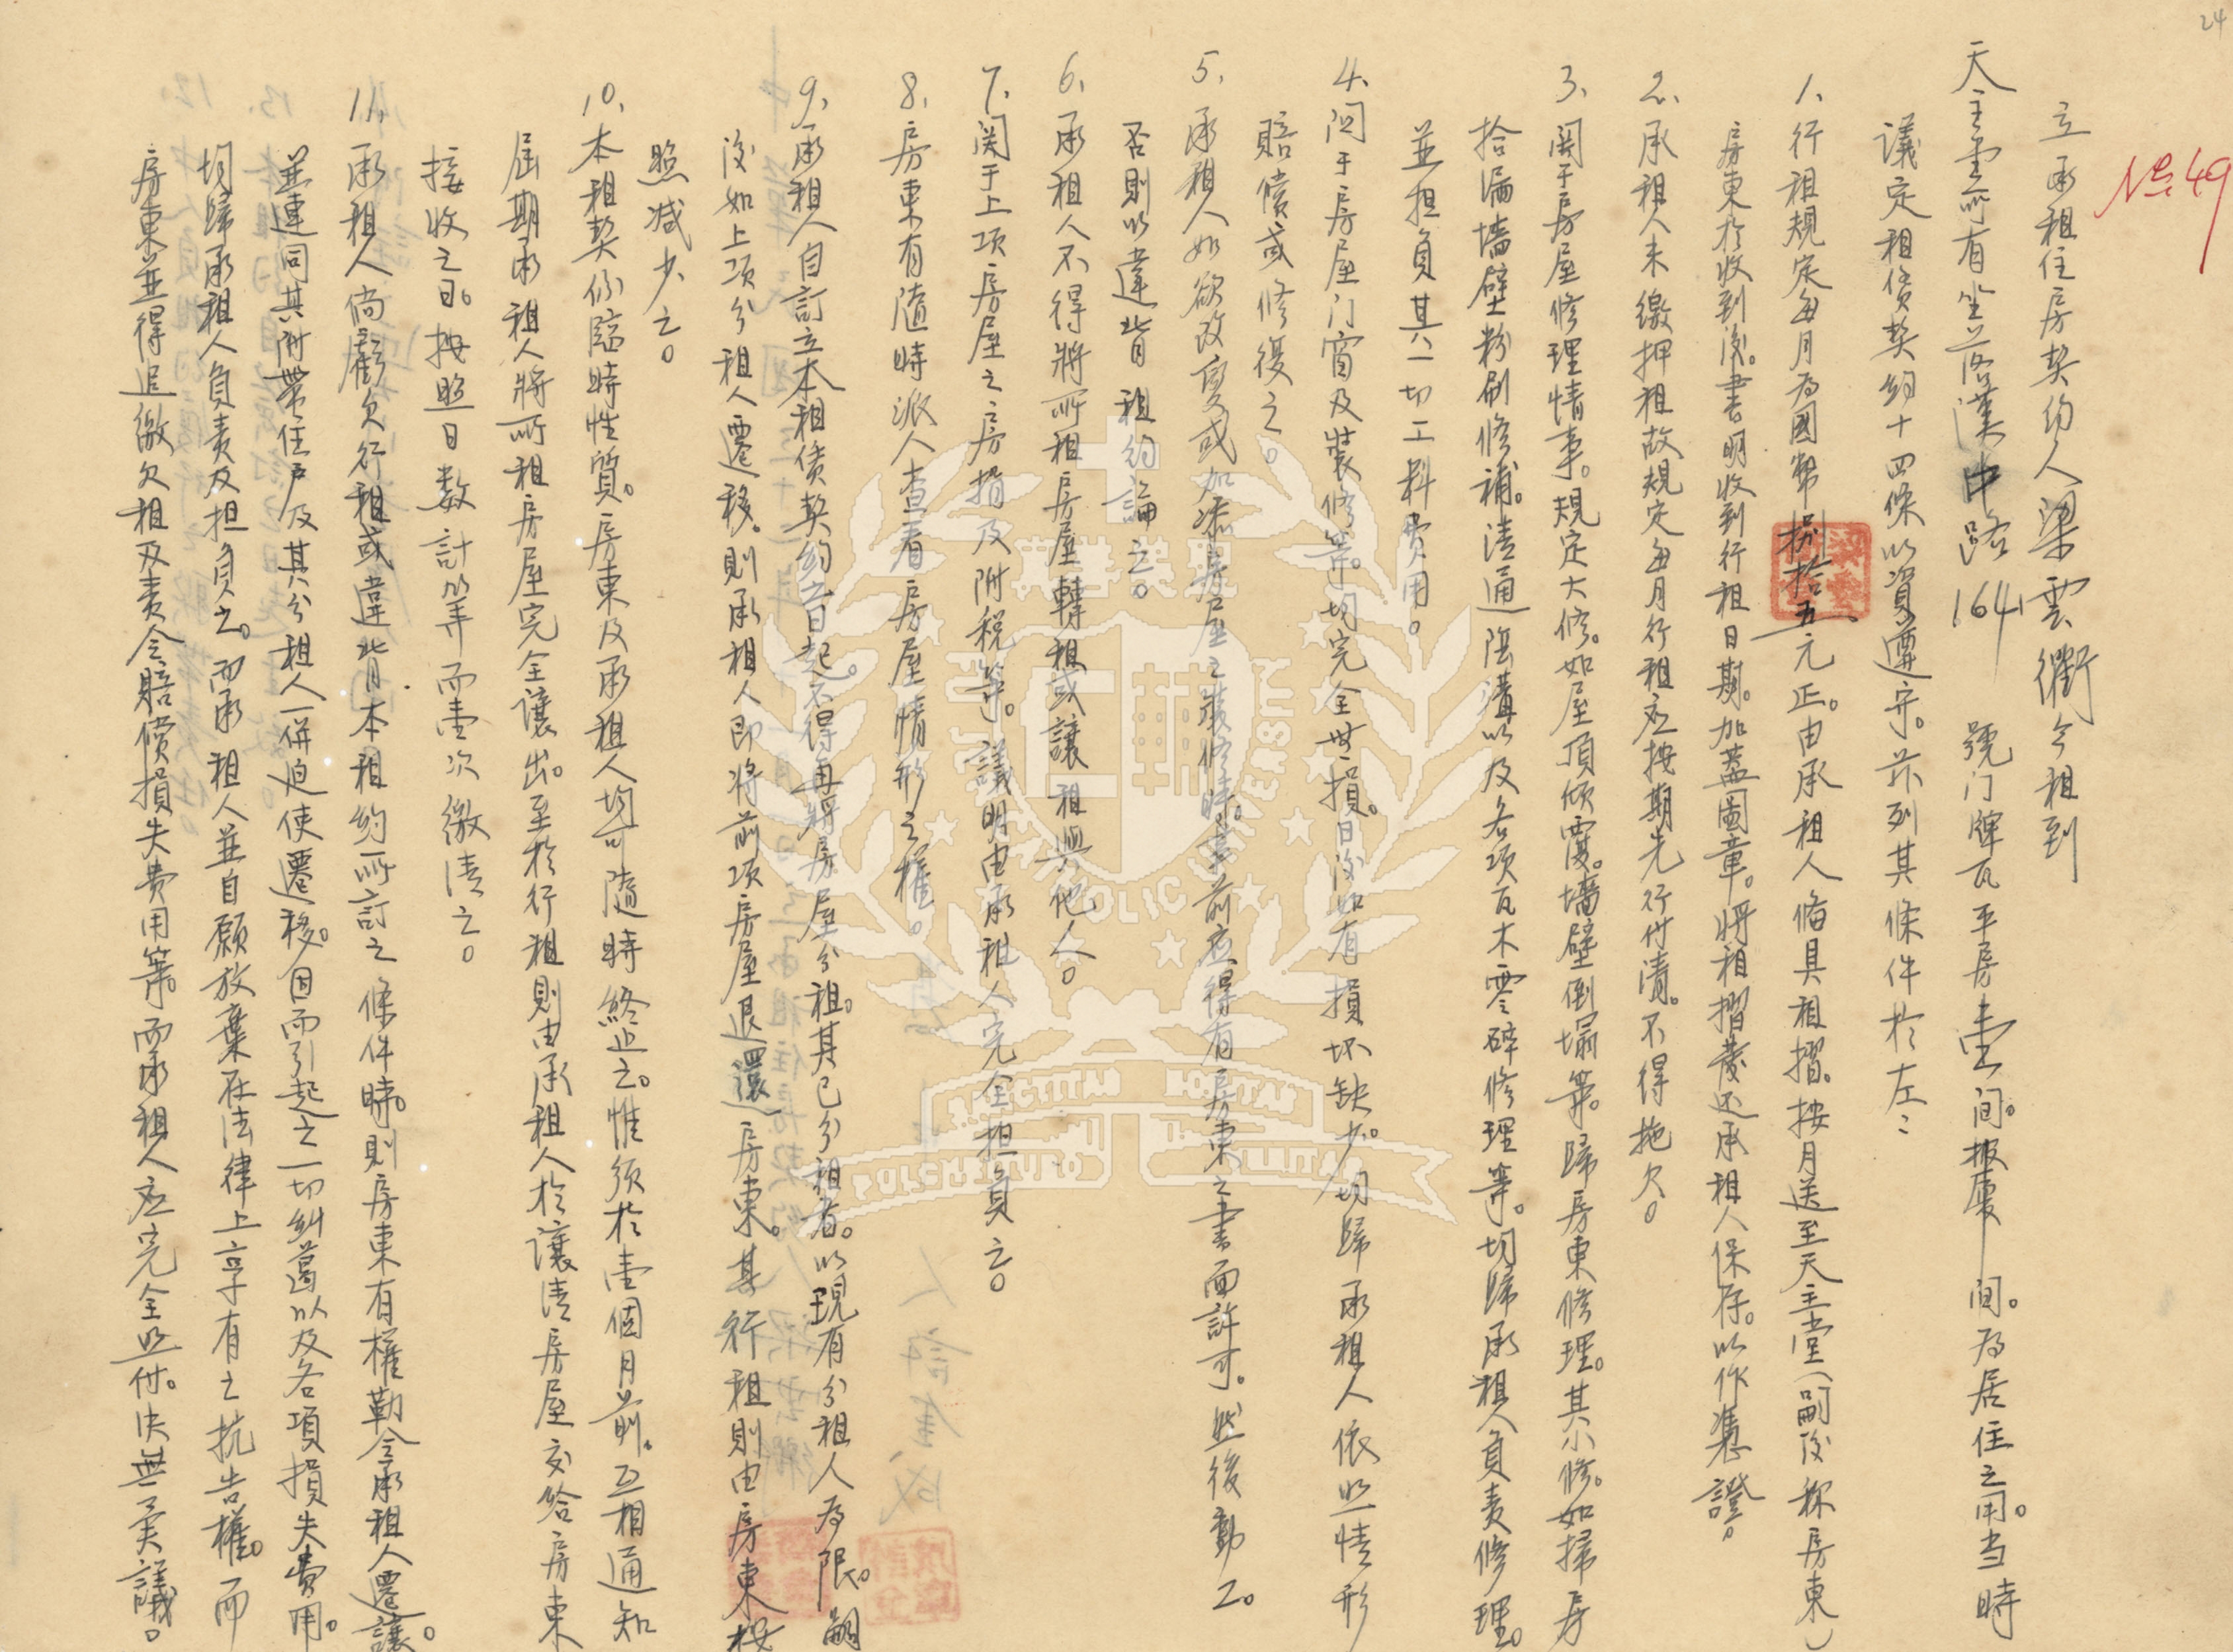 24
№49
立承租住房契約人梁雲衢今租到
天主堂所有坐落漢中路164號门牌瓦平房壹间。披厦 间。为居住之用。当時
議定租赁契約十四條以資遵守。茲列其條件於左：
1、行租規定每月为國幣捌拾五元正。由承租人俻具租摺。按月送至天主堂（嗣後称房東）
房東於收到後。書明收到行租日期。加蓋圖章。將租摺發还承租人保存。以作憑證。
2、承租人未繳押租故規定每月行租应按期先行付清。不得拖欠。
3、関于房屋修理情事。規定大修。如屋頂傾覆。墻壁倒塌等。歸房東修理。其小修。如掃房
拾漏墻壁粉刷修補。清通陰溝以及各項瓦木零碎修理等。均歸承租人負责修理。
並担負其一切工料费用。
4、関于房屋门窗及裝修等。均完全無損。日後如有損坏缺少。均歸承租人依照情形
賠償或修復之。
5、承租人如欲改變或加添房屋之裝修時。事前应得有房東之書面許可。然後動工。
否則以違背租约論之。
6、承租人不得將所租房屋轉租或讓租與他人。
7、関于上项房屋之房捐及附税等。議明由承租人完全担負之。
8、房東有隨時派人查看房屋情形之權。
9、承租人自訂立本租赁契约之日起。不得再將房屋分租。其已分租者。以現有分租人为限。嗣
後如上项分租人遷移。則承租人即将前项房屋退還房東。其行租則由房東按
照减少之。
10、本租契係臨時性質。房東及承租人均可隨時終止之。惟须於壹個月前。互相通知
屆期承租人將所租房屋完全讓出。至於行租則由承租人於讓清房屋交给房東
接收之日。按照日数計算而壹次繳清之。
11、承租人倘虧欠行租或違背本租約所訂之條件時。則房東有權勒令承租人遷讓。
並連同其附帶住户及其分租人一併迫使遷移。因而引起之一切糾葛以及各項損失費用。
均歸承租人負责及担負之。而承租人並自願放棄在法律上享有之抗告權。而
房東並得追繳欠租及责令賠償損失費用等。而承租人应完全照付。决無異議。
輔仁大學
FU JEN CATHOLIC UNIVERSITY